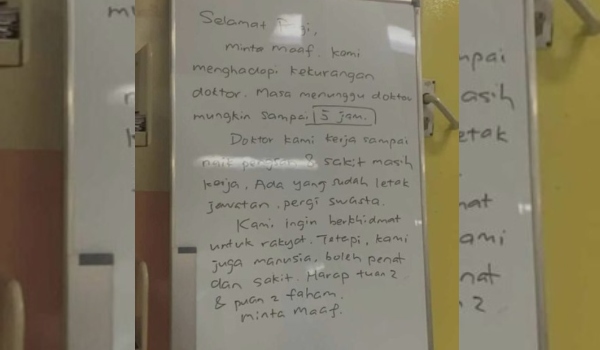 Selamat Pagi,
minta maaf. Kami
menghadapi kekurangan
doktor. Masa menunggu doktor
mungkin sampai 5 jam.
Doktor kami kerja sampai
naik pengsan & sakit masih
kerja. Ada yang sudah letak
jawatan, pergi swasta.
Kami ingin berkhidmat
untuk rakyat. Tetapi, kami
juga manusia, boleh penat
dan sakit. Harap tuan2
& puan2 faham.
minta maaf.